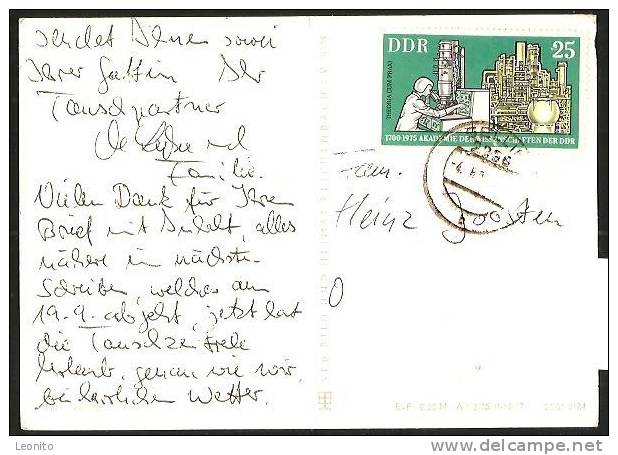 sendet Ihnen sowie
Ihrer Gattin Ihr
Tauschpartner
und
Familie.
Vielen Dank für Ihren
Brief mit Inhalt, alles
nähere im nächsten
Schreiben, welches am
19.9. abgeht, jetzt hat
die Tauschzentrale
Urlaub, genau wie wir,
bei herrlichem Wetter.
DDR 25
THEORIA CUM PRAXI
1700-1975 AKADEMIE DER WISSENSCHAFTEN DER DDR
Fam.
Heinz Joosten
Leonito
www.delcampe.net